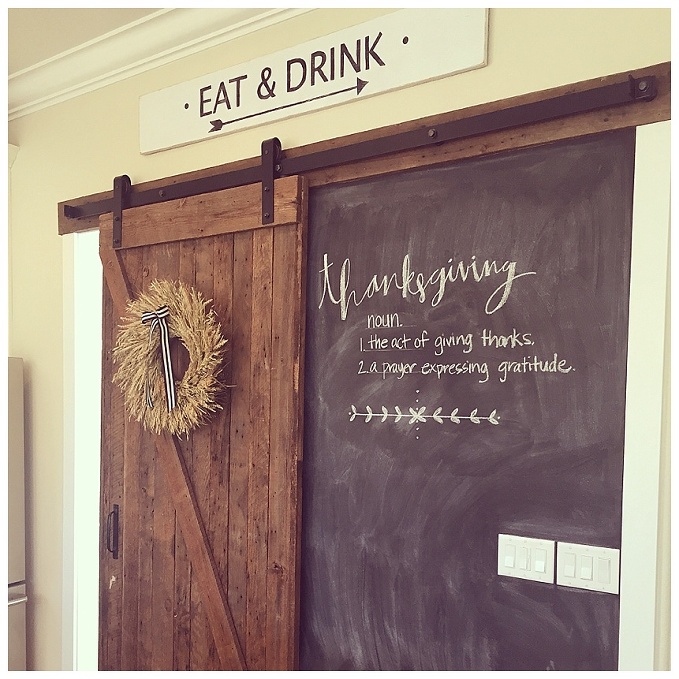 • EAT & DRINK •
thanksgiving
noun.
1. the act of giving thanks.
2. a prayer expressing gratitude.